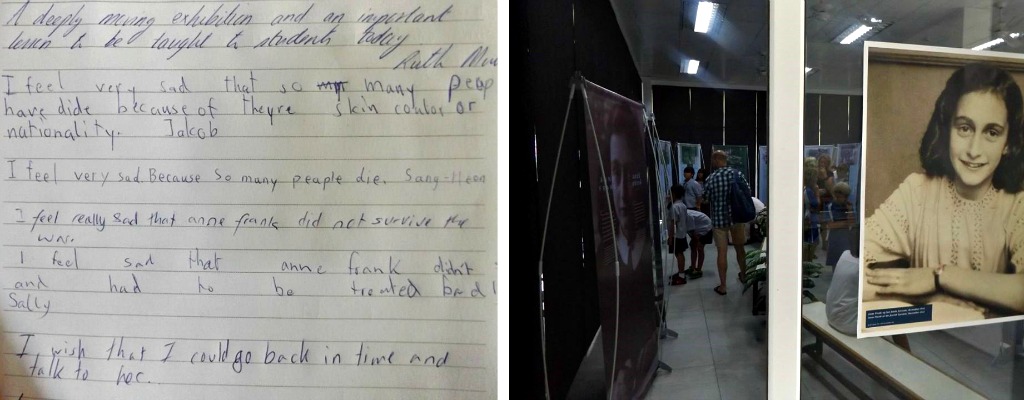 A deeply moving exhibition and an important
lesson to be taught to students today
Ruth
I feel very sad that so many peop
have dide because of theyre skin coulor or
nationality. Jakob
I feel very sad. Because so many peaple die. Sang-Heon
I feel really sad that anne frank did not survive the
war.
I feel sad that anne frank didn't
and had to be treated badl
Sally
I wish that I could go back in time and
talk to her.